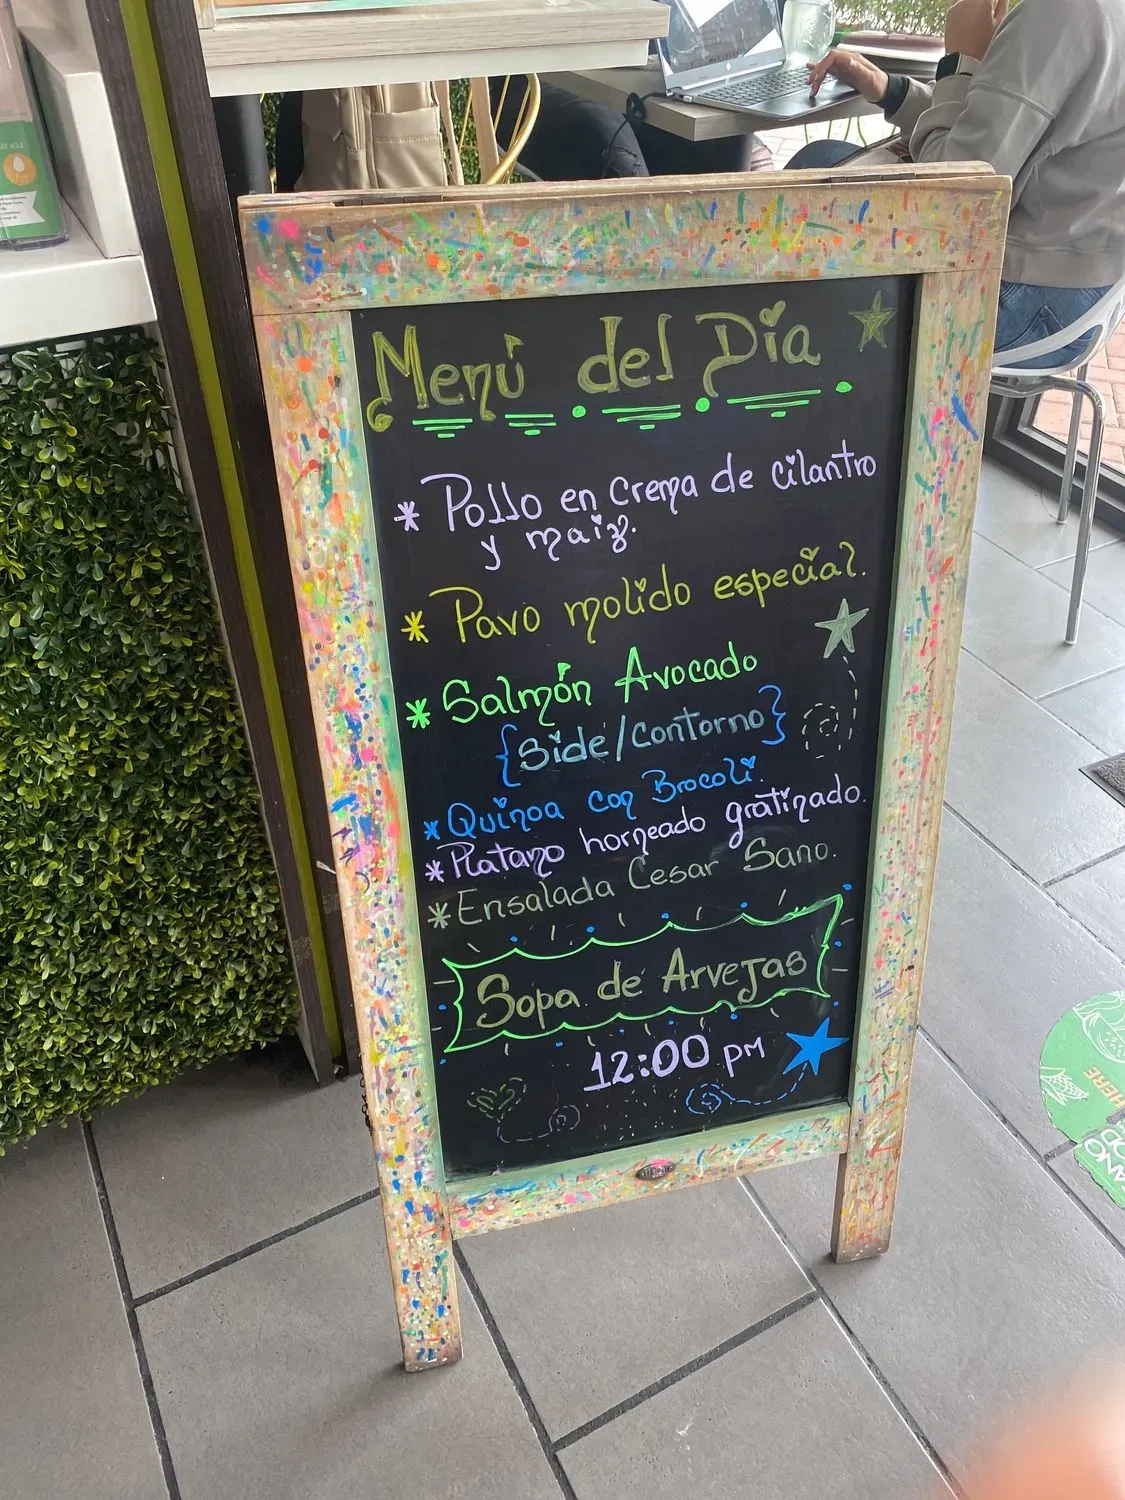 Menú del Día
* Pollo en crema de cilantro
y maiz.
* Pavo molido especial.
* Salmón Avocado
{Side/Contorno}
* Quinoa con Brocoli.
* Platano horneado gratinado.
* Ensalada Cesar Sano.
Sopa de Arvejas
12:00 pm
HERE